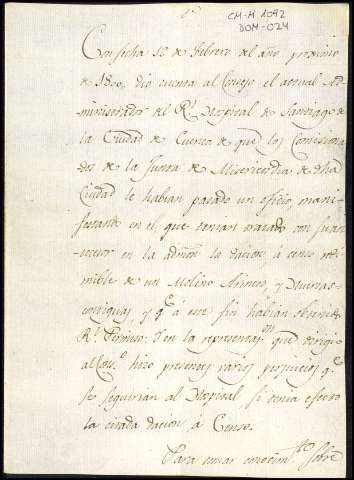 CM-M 1092
DOM-024
Con fecha 18 de febrero del año proximo
de 1800, dio cuenta al Consejo el actual Ad-
ministrador del Rl. Hospital de Santiago de
la Ciudad de Cuenca de que los Comisiona-
dos de la Junta de Misericordia de dha
Ciudad le habian pasado un oficio mani-
festando en el que tenian tratado con su an-
tecesor en la admon. la dacion, à censo redi-
mible de un Molino Arinero, y
contiguas, y qe. à este fin habian obtenido
Rl. Permiso. Y en la representaon. que dirigió
al Cono. hizo presentes varios perjuicios qe.
se seguirian al Hospital si tenia efecto
la citada dacion à Censo.
Para tomar conocimto. sobre